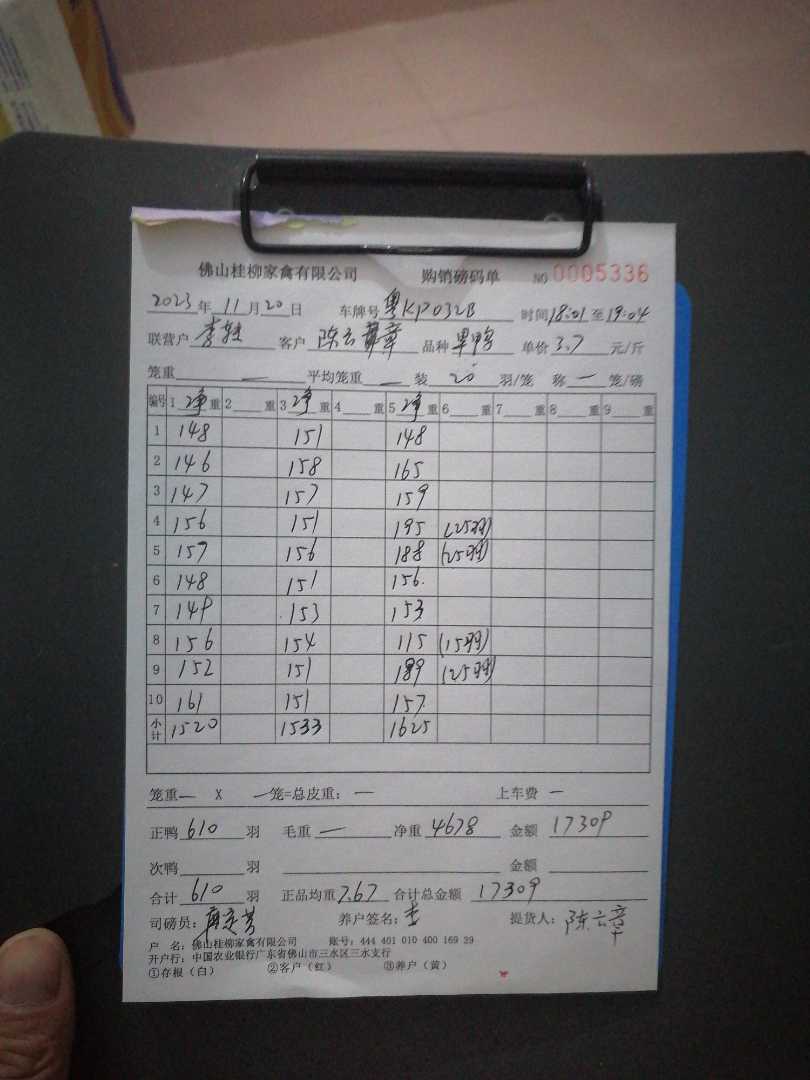 佛山桂柳家禽有限公司 购销磅码单 NO 0005336
2023年 11月 20日 车牌号 粤KP032B 时间 18:01 至 19:04
联营户 李 客户 陈云章 品种 单价 3.7 元/斤
笼重 — 平均笼重 — 装 20 羽/笼 称 一 笼/磅
编号 1 净重 2 重 3 净重 4 重 5 净重 6 重 7 重 8 重 9 重
1 148 151 148
2 146 158 165
3 147 157 159
4 156 151 195 (25羽)
5 157 156 188 (25羽)
6 148 151 156.
7 149 153 153
8 156 154 115 (15羽)
9 152 151 189 (25羽)
10 161 151 157.
小计 1520 1533 1625
笼重 — X 一 笼=总皮重: — 上车费 —
正鸭 610 羽 毛重 — 净重 4678 金额 17309
次鸭 羽 金额
合计 610 羽 正品均重 7.67 合计总金额 17309
司磅员: 养户签名: 李 提货人: 陈云章
户 名: 佛山桂柳家禽有限公司 账号: 444 401 010 400 169 39
开户行: 中国农业银行广东省佛山市三水区三水支行
①存根（白） ②客户（红） ③养户（黄）